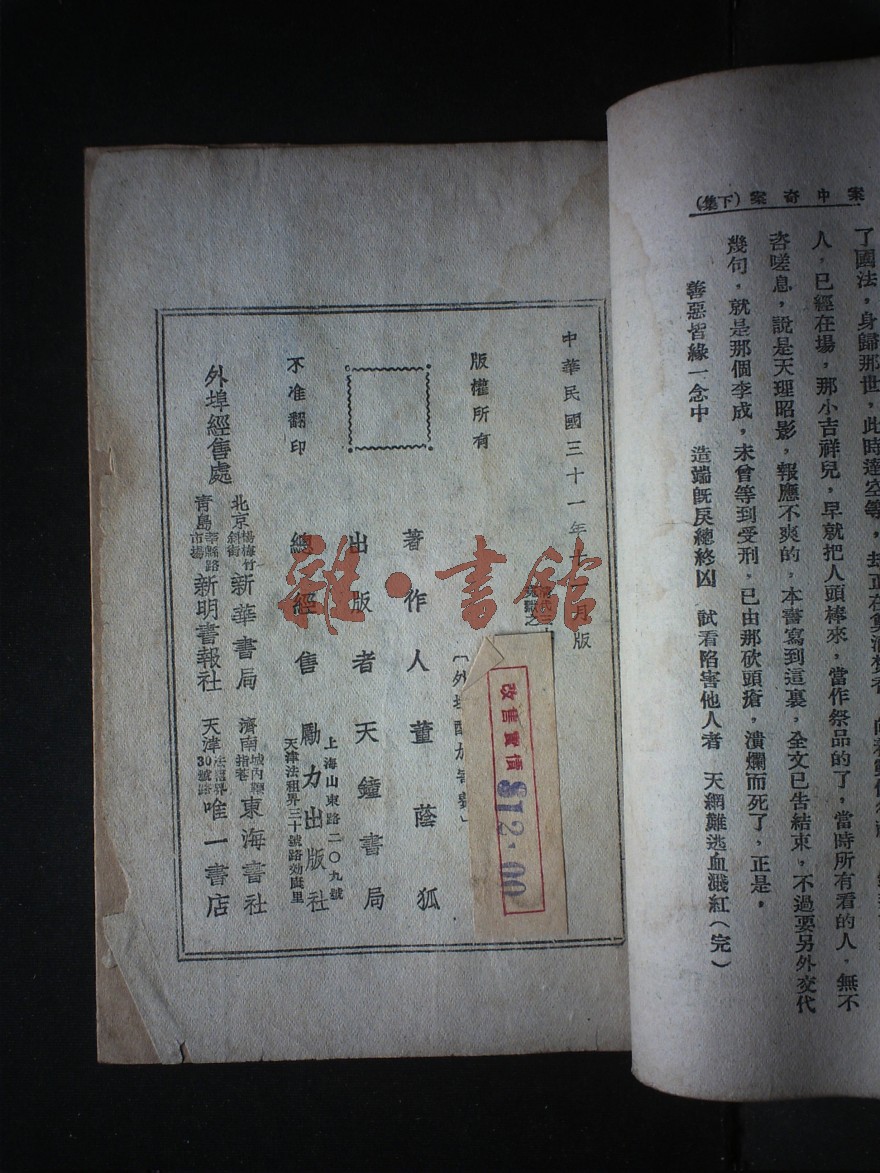 案中奇案（下集）
了國法，身歸那世，此時達空等，却正在
人，已經在場，那小吉祥兒，早就把人頭棒來，當作祭品的了，當時所有看的人，無不
咨嗟息，說是天理昭影，報應不爽的，本書寫到這裏，全文已告結束，不過要另外交代
幾句，就是那個李成，未曾等到受刑，已由那砍頭瘡，潰爛而死了，正是。
善惡皆緣一念中　造端旣戾總終凶　試看陷害他人者　天網難逃血濺紅（完）
中華民國三十一年十一月版
版權所有
不准翻印
著作人董蔭狐
出版者天鐘書局
總經售勵力出版社
上海山東路二〇九號
天津法租界三十號路効康里
外埠經售處
北京楊梅竹斜街新華書局
濟南城內東海書社
青島市場新明書報社
天津法租界30號路唯一書店
改售實價
$12.00
雜·書館